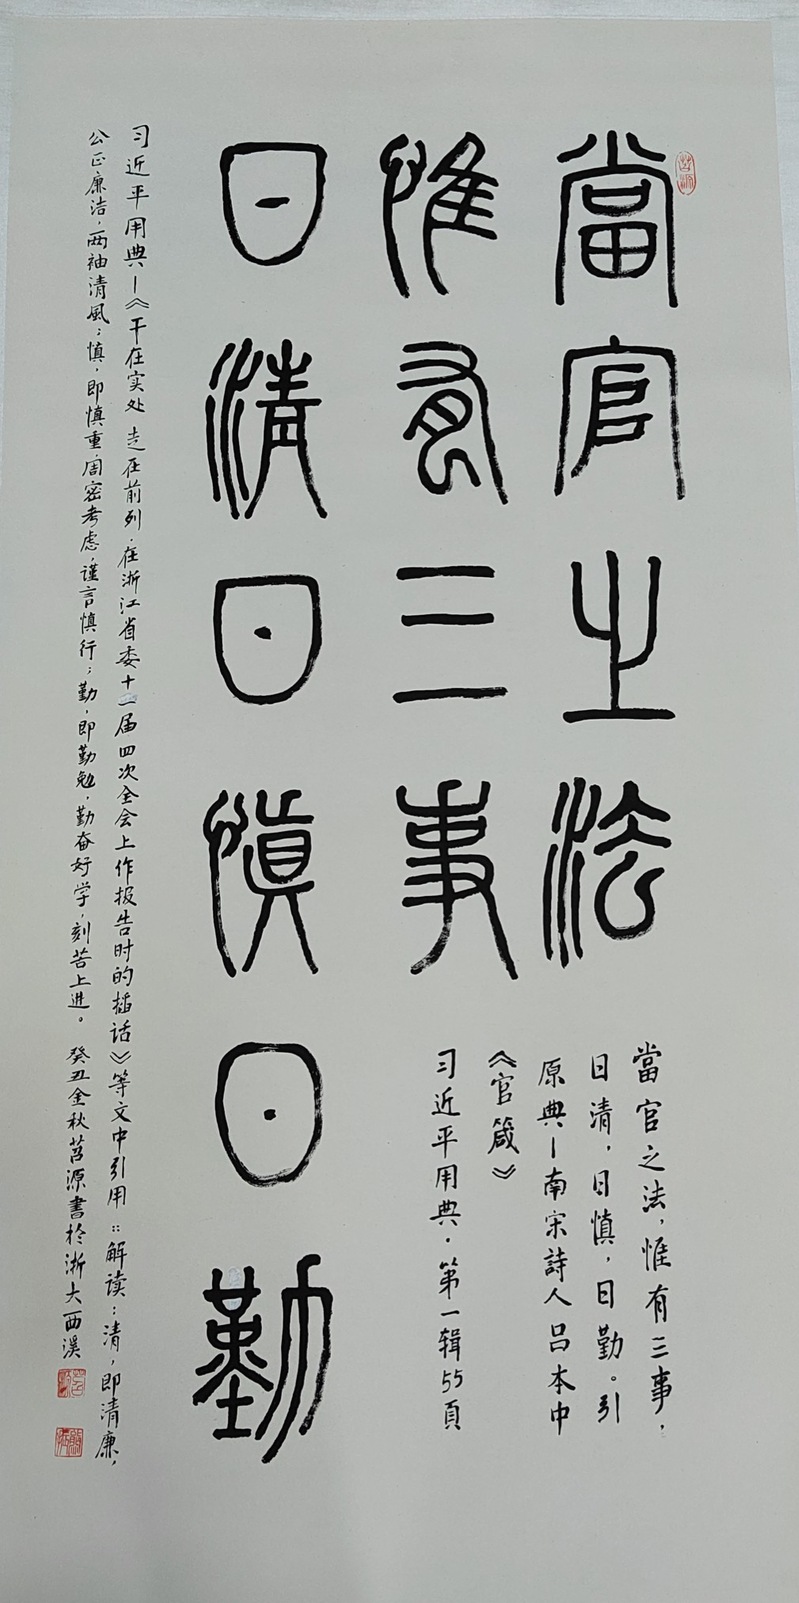 當官之法
惟有三事
曰清曰慎曰勤
當官之法，惟有三事，
曰清，曰慎，曰勤。引
原典—南宋詩人吕本中
《官箴》
习近平用典·第一辑55頁
习近平用典—《干在实处 走在前列·在浙江省委十一届四次全会上作报告时的插话》等文中引用::解读：清，即清廉，
公正廉洁，两袖清風；慎，即慎重，周密考虑，谨言慎行；勤，即勤勉，勤奋好学，刻苦上进。 癸丑金秋苕源書於浙大西溪